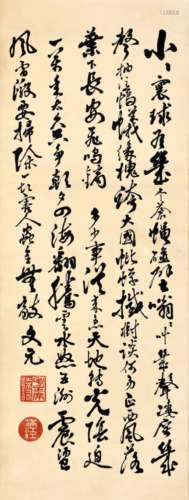 小小寰球有幾个蒼蠅碰壁嗡嗡叫幾聲凄厲幾
聲抽泣螞蟻緣槐誇大國蚍蜉撼樹談何易正西風落
葉下長安飛鳴鏑多少事從來急天地轉光陰迫
一萬年太久只爭朝夕四海翻騰雲水怒五洲震盪
風雷激要掃除一切害人蟲全無敵文元